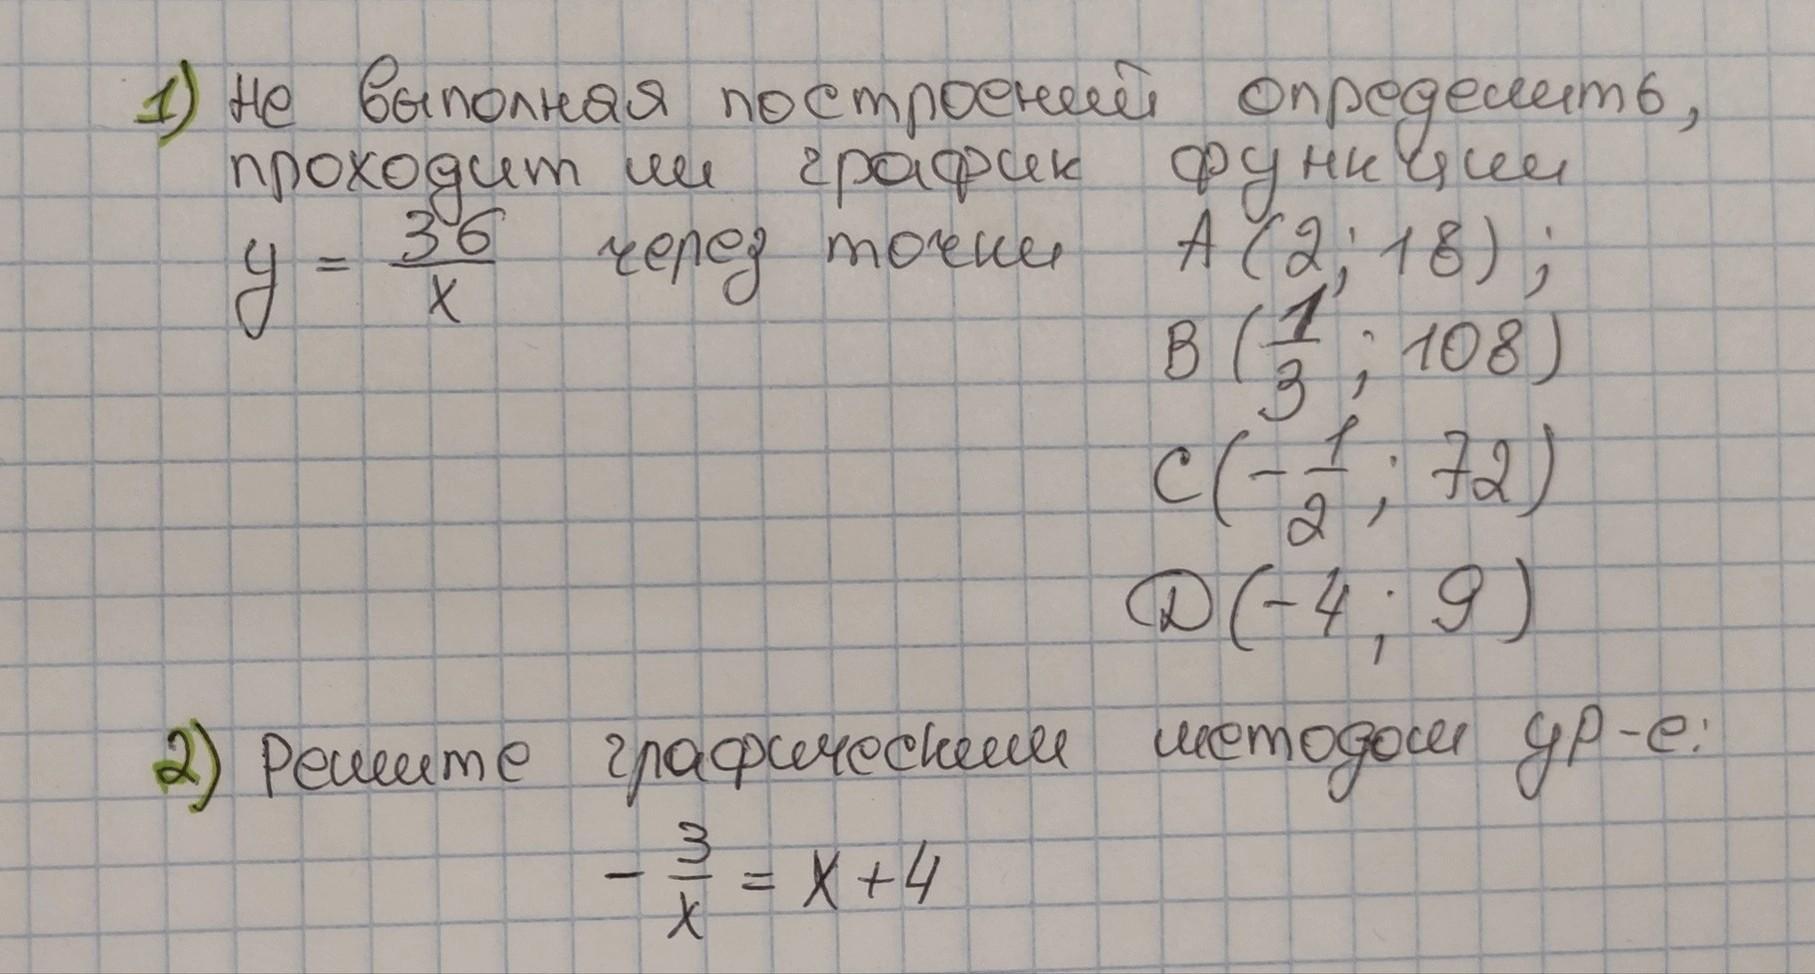 1) Не выполняя построений определить,
проходит ли график функции
y = 36/x через точки A(2; 18);
B(1/3; 108)
C(-1/2; 72)
D(-4; 9)
2) Решите графическим методом ур-е:
-3/x = x+4